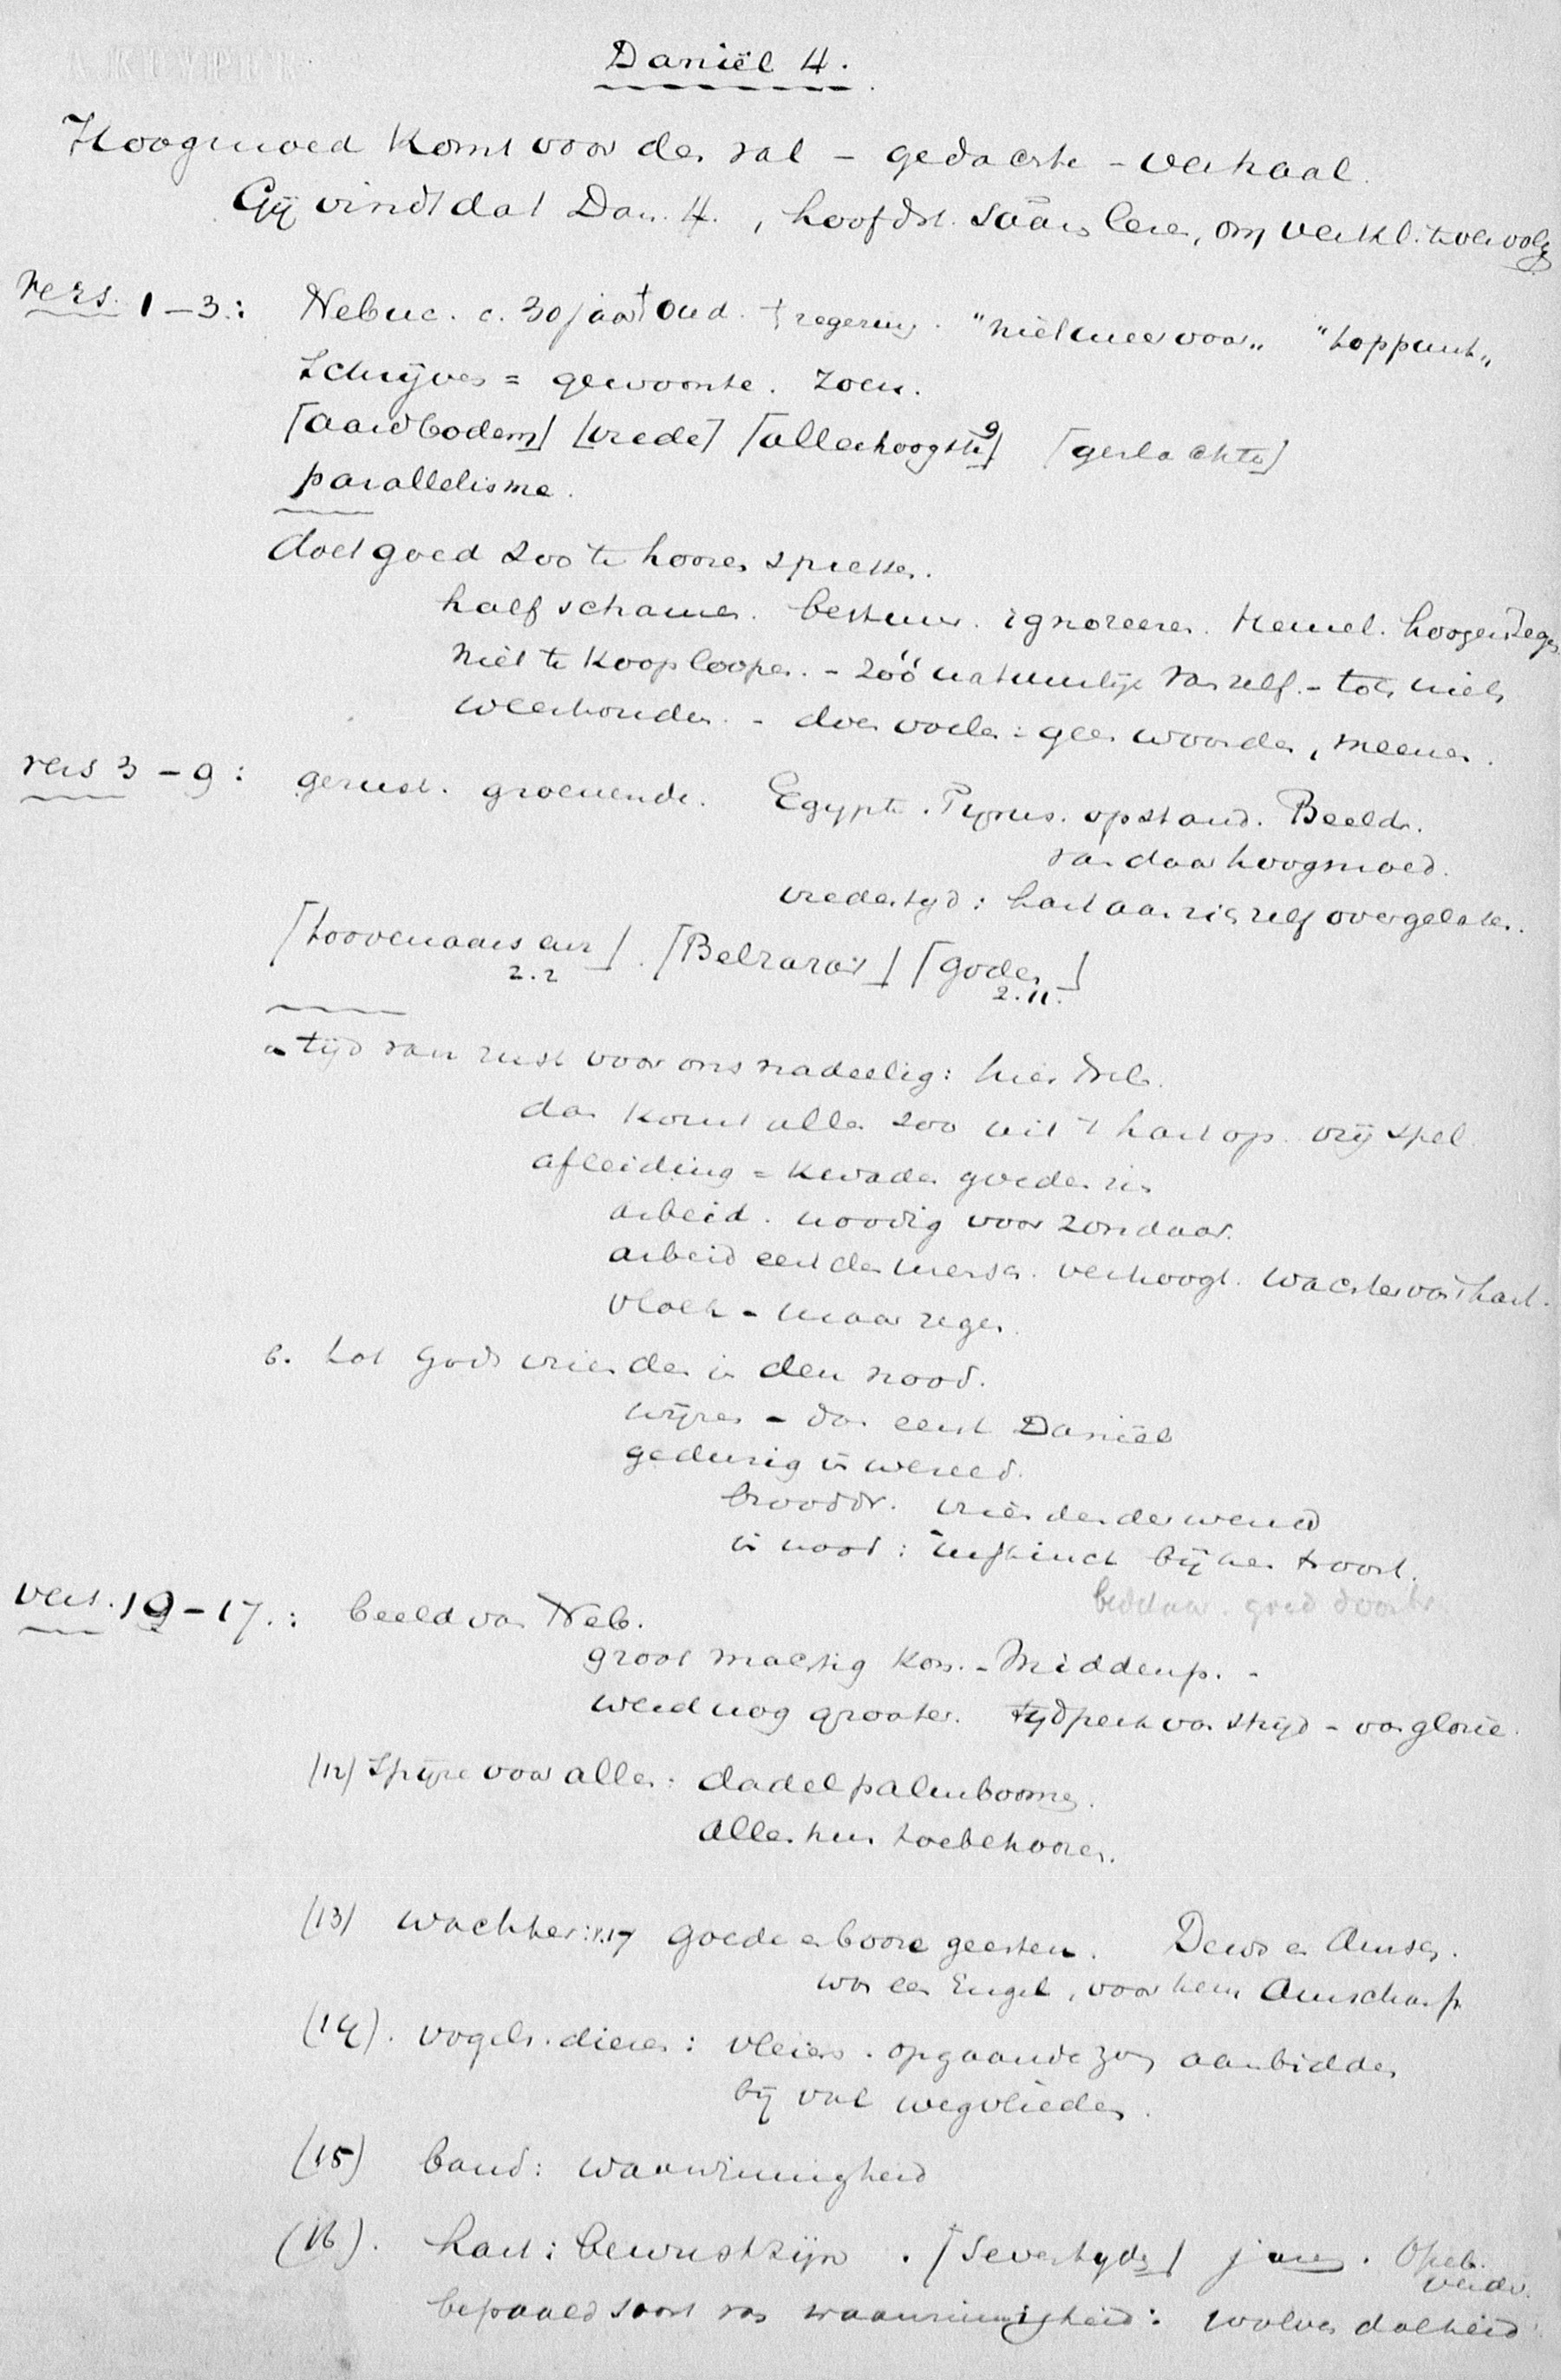 A. KUYPER
Daniël 4.
Hoogmoed komt voor den val – gedachte – verhaal.
Gij vindt dat Dan. 4., hoofdst. om verkl. te vervolg
vers. 1–3.: Nebuc. c. 30 jaar oud. † regering. "niet meer voor" "toppunt"
Schrijven = gewoonte. zoen.
[aardbodem] [vrede] [allerhoogste 9] [geslachte]
parallelisme.
doet goed zoo te hooren spreken.
half schamen. bestuur. ignoreeren. Hemel. hooger
niet te koop loopen. – zóó natuurlijk van zelf. – toch niet
weerhouden. – doen voelen: geen woorden, meenen.
vers 3–9: gerust. groenende. Egypte. Tyrus. opstand. Beeld.
van daar hoogmoed.
vredestijd: hart aan zich zelf overgelaten.
[toovenaars en 2.2]. [Belzazar] [goden 2.11.]
a tijd van rust voor ons nadeelig: hier Neb.
dan komt alles zoo uit 't hart op. vrij spel.
afleiding = kwade goeden zin
arbeid. noodig voor zondaar.
arbeid eert den mensch. verhoogt. wachter voor 't hart.
vloek – maar zegen.
b. tot Gods vrienden in den nood.
wijzen – dan eerst Daniël
gedurig in wereld.
brooddr. vrienden der wereld
in nood: instinct bij hen troost.
vers. 10–17.: beeld van Neb.
groot machtig kon. – Middenp. –
werd nog grooter. tijdperk van strijd – van glorie.
(12) Spijze voor allen: dadelpalmboomen.
allen hem toebehooren.
(13) wachter: v.17 goede en booze geesten. Dews en Amsch.
was een Engel, voor hem Amschasp.
(14). vogels. dieren: vleiers. opgaande zon aanbidden
bij val wegvlieden.
(15) band: waanzinnigheid
(16). hart: bewustzijn. [Seven tyden] jaren. Openb.
bepaald soort van waanzinnigheid: wolven dolheid